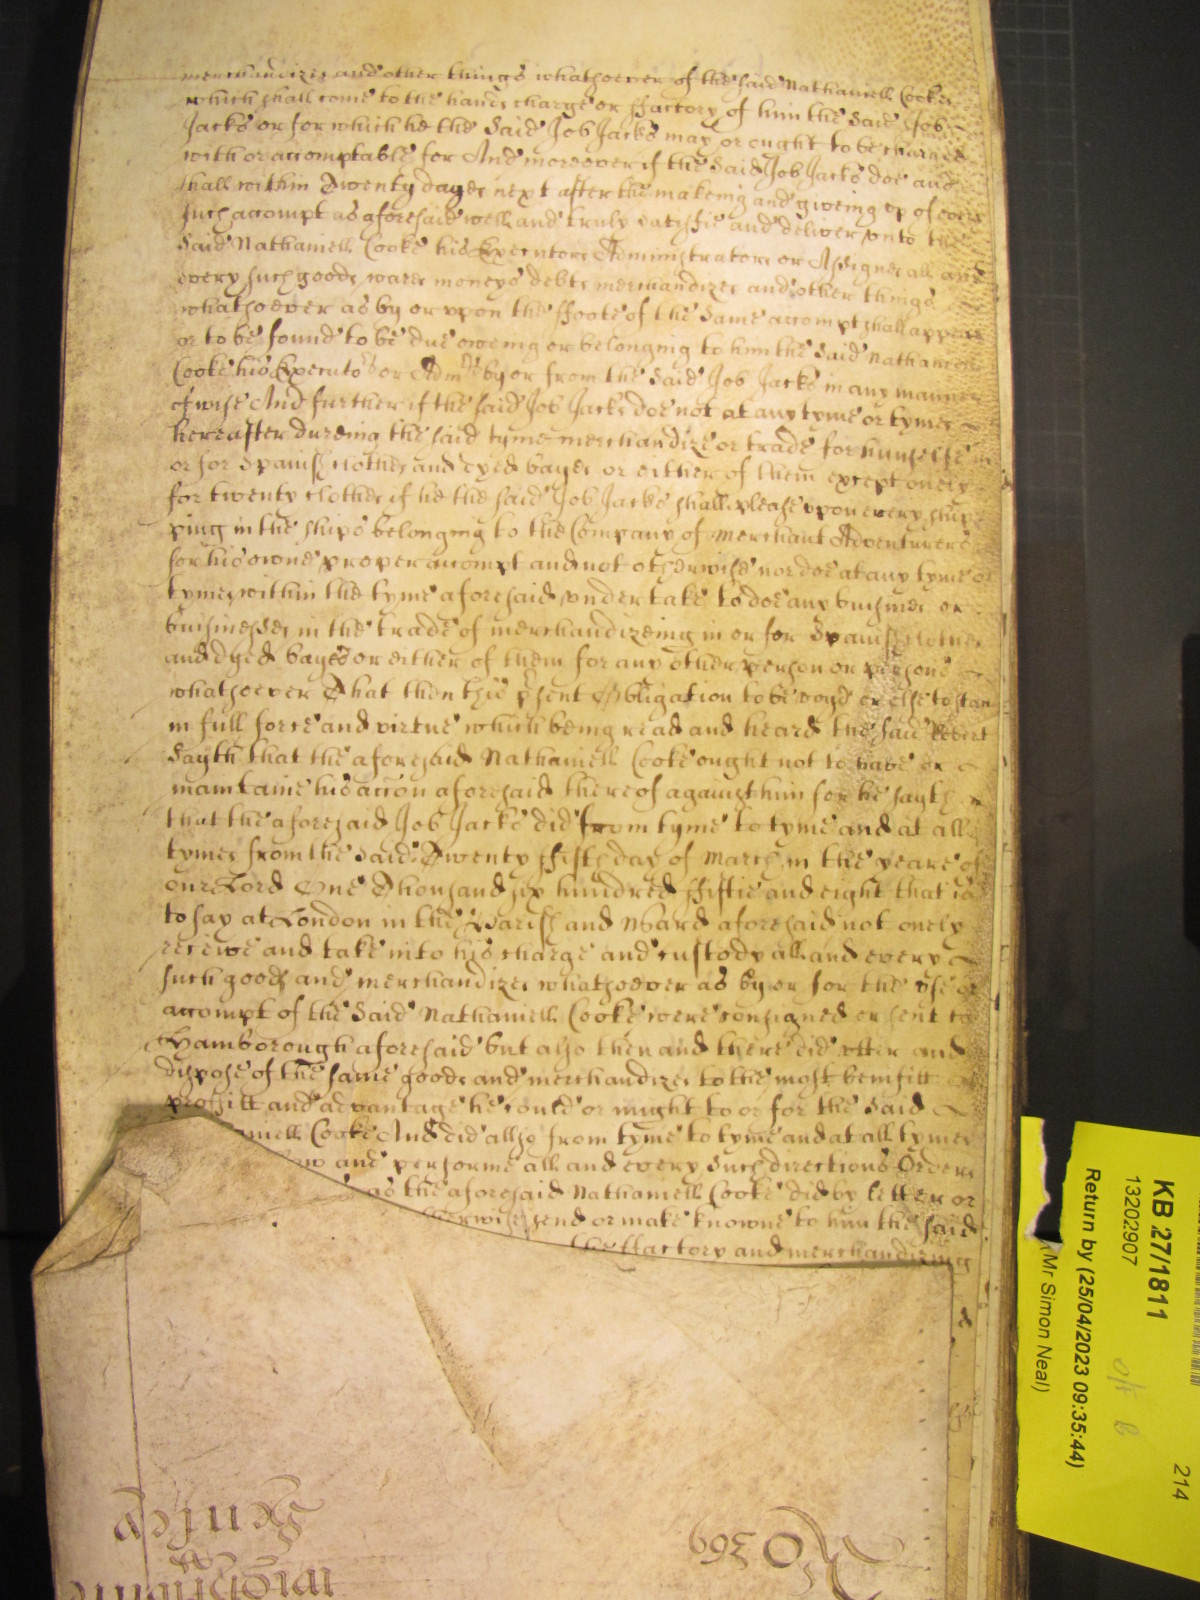 merchandizes and other things whatsoever of the said Nathaniell Cooke
which shall come to the hands charge or ffactory of him the said Job
Jacks or for which he the said Job Jacks may or ought to be charged
with or accomptable for And moreover if the said Job Jacks doe and
shall within Twenty dayes next after the makeing and giveing up of every
such accompt as aforesaid well and truly satisfie and deliver unto the
said Nathaniell Cooke his Executors Administrators or Assignes all and
every such goods wares moneys debts merchandizes and other things
whatsoever as by or upon the ffoote of the same accompt shall appeare
or to be found to be due oweing or belonging to him the said Nathaniell
Cooke his Executors or Admrs by or from the said Job Jacks in any manner
of wise And further if the said Job Jacks doe not at any tyme or tymes
hereafter dureing the said tyme merchandize or trade for himselfe in
or for Spanish clothes and dyed bayes or either of them except onely
for twenty clothes if he the said Job Jacks shall please upon every ship
ping in the ships belonging to the Company of Merchant Adventurers
for his owne proper accompt and not otherwise nor doe at any tyme or
tymes within the tyme aforesaid undertake to doe any busines or
businesses in the trade of merchandizeing in or for Spanish clothes
and dyed bayes or either of them for any other person or persons
whatsoever That then this psent Obligation to be voyd or else to stand
in full force and virtue which being read and heard the said Robert
Sayth that the aforesaid Nathaniell Cooke ought not to have or
maintaine his accon aforesaid thereof against him for he sayth
that the aforesaid Job Jacks did from tyme to tyme and at all
tymes from the said Twenty ffifth day of March in the yeare of
our Lord One Thousand six hundred ffiftie and eight that is
to say at London in the Parish and Ward aforesaid not onely
receive and take into his charge and custody all and every
such goods and merchandizes whatsoever as by or for the use or
accompt of the said Nathaniell Cooke were consigned or sent to
Hamborough aforesaid but also then and there did utter and
dispose of the same goods and merchandizes to the most benifitt
proffitt and advantage he could or might to or for the said
aniell Cooke And did allso from tyme to tyme and at all tymes
ow and performe all and every such directions Orders
as the aforesaid Nathaniell Cooke did by letter or
herwise send or make knowne to him the said
the ffactory and merchandizing
KB 27/1811
13202907
Return by (25/04/2023 09:35:44)
Mr Simon Neal)
214
No 369